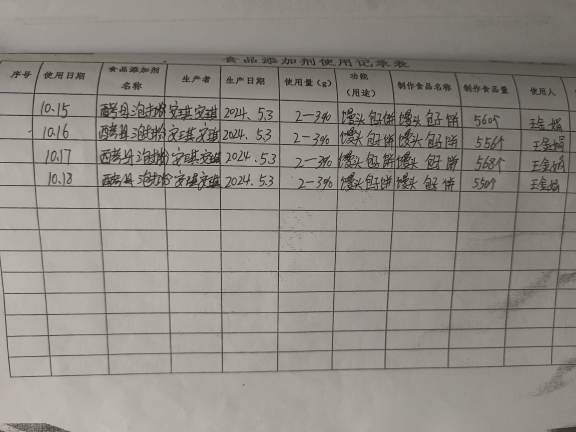 食品添加剂使用记录表
序号 使用日期 食品添加剂名称 生产者 生产日期 使用量(g) 功能(用途) 制作食品名称 制作食品量 使用人
10.15 酵母 泡打粉 安琪 安琪 2024.5.3 2-3% 馒头 包子 饼 馒头 包子 饼 560个
10.16 酵母 泡打粉 安琪 安琪 2024.5.3 2-3% 馒头 包子 饼 馒头 包子 饼 556个
10.17 酵母 泡打粉 安琪 安琪 2024.5.3 2-3% 馒头 包子 饼 馒头 包子 饼 568个
10.18 酵母 泡打粉 安琪 安琪 2024.5.3 2-3% 馒头 包子 饼 馒头 包子 饼 550个